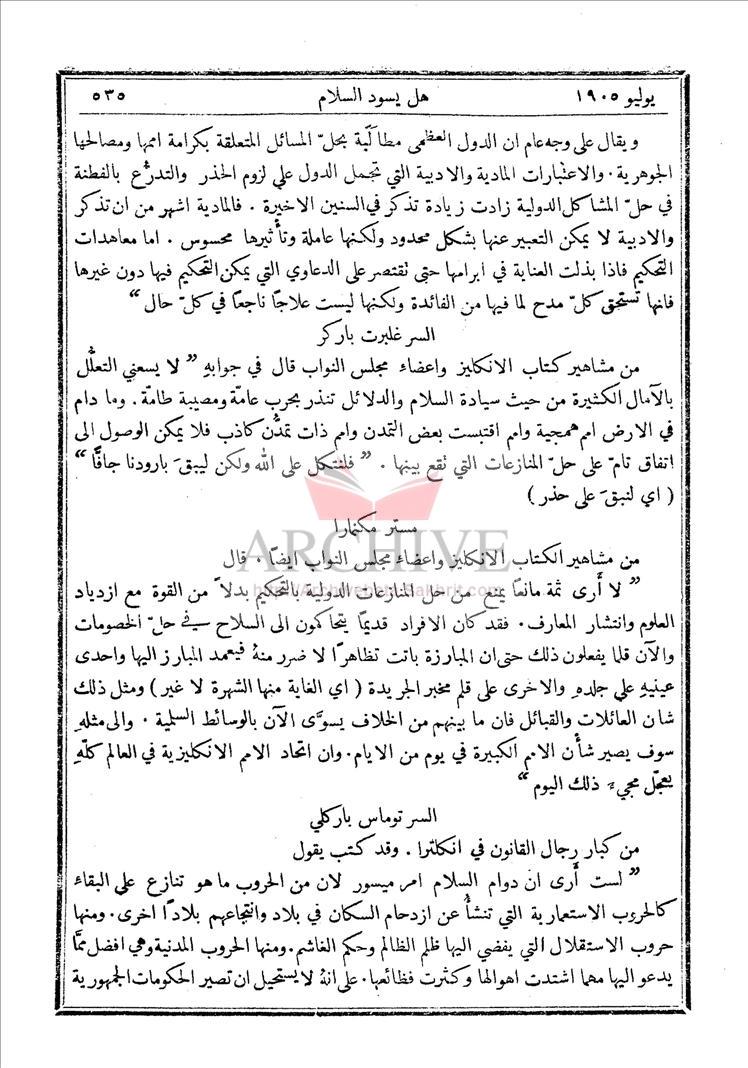 يوليو ١٩٠٥ هل يسود السلام ٥٣٥
ويقال على وجه عام ان الدول العظمى مطالَبة بحلّ المسائل المتعلقة بكرامة اممها ومصالحها
الجوهرية. والاعتبارات المادية والادبية التي تجمل الدول على لزوم الحذر والتدرُّع بالفطنة
في حلّ المشاكل الدولية زادت زيادة تذكر في السنين الاخيرة. فالمادية اشهر من ان تذكر
والادبية لا يمكن التعبير عنها بشكل محدود ولكنها عاملة وتأثيرها محسوس. اما معاهدات
التحكيم فاذا بذلت العناية في ابرامها حتى تقتصر على الدعاوي التي يمكن التحكيم فيها دون غيرها
فانها تستحق كلّ مدح لما فيها من الفائدة ولكنها ليست علاجًا ناجعًا في كلّ حال “
السر غلبرت باركر
من مشاهير كتاب الانكليز واعضاء مجلس النواب قال في جوابهِ ” لا يسعني التعلُّل
بالآمال الكثيرة من حيث سيادة السلام والدلائل تنذر بحرب عامّة ومصيبة طامّة. وما دام
في الارض امم همجية وامم اقتبست بعض التمدن وامم ذات تمدُّن كاذب فلا يمكن الوصول الى
اتفاق تامّ على حلّ المنازعات التي تقع بينها. ” فلنتكل على الله ولكن ليبقَ بارودنا جافًّا “
( اي لنبقَ على حذر )
مستر مكنمارا
من مشاهير الكتاب الانكليز واعضاء مجلس النواب ايضًا. قال
” لا أَرى ثمة مانعًا يمنع من حل المنازعات الدولية بالتحكيم بدلاً من القوة مع ازدياد
العلوم وانتشار المعارف. فقد كان الافراد قديمًا يتحاكمون الى السلاح في حلّ الخصومات
والآن قلما يفعلون ذلك حتى ان المبارزة باتت تظاهرًا لا ضرر منهُ فيعمد المبارز اليها واحدى
عينيهِ على جلدهِ والاخرى على قلم مخبر الجريدة ( اي الغاية منها الشهرة لا غير ) ومثل ذلك
شان العائلات والقبائل فان ما بينهم من الخلاف يسوَّى الآن بالوسائط السلمية. والى مثلهِ
سوف يصير شأن الامم الكبيرة في يوم من الايام. وان اتحاد الامم الانكليزية في العالم كلّهِ
يعجّل مجيء ذلك اليوم “
السر توماس باركلي
من كبار رجال القانون في انكلترا. وقد كتب يقول
” لست أَرى ان دوام السلام امر ميسور لان من الحروب ما هو تنازع على البقاء
كالحروب الاستعمارية التي تنشأُ عن ازدحام السكان في بلاد وانتجاعهم بلادًا اخرى. ومنها
حروب الاستقلال التي يفضي اليها ظلم الظالم وحكم الغاشم. ومنها الحروب المدنية وهي افضل ممَّا
يدعو اليها مهما اشتدت اهوالها وكثرت فظائعها. على انهُ لا يستحيل ان تصير الحكومات الجمهورية
ARCHIVE